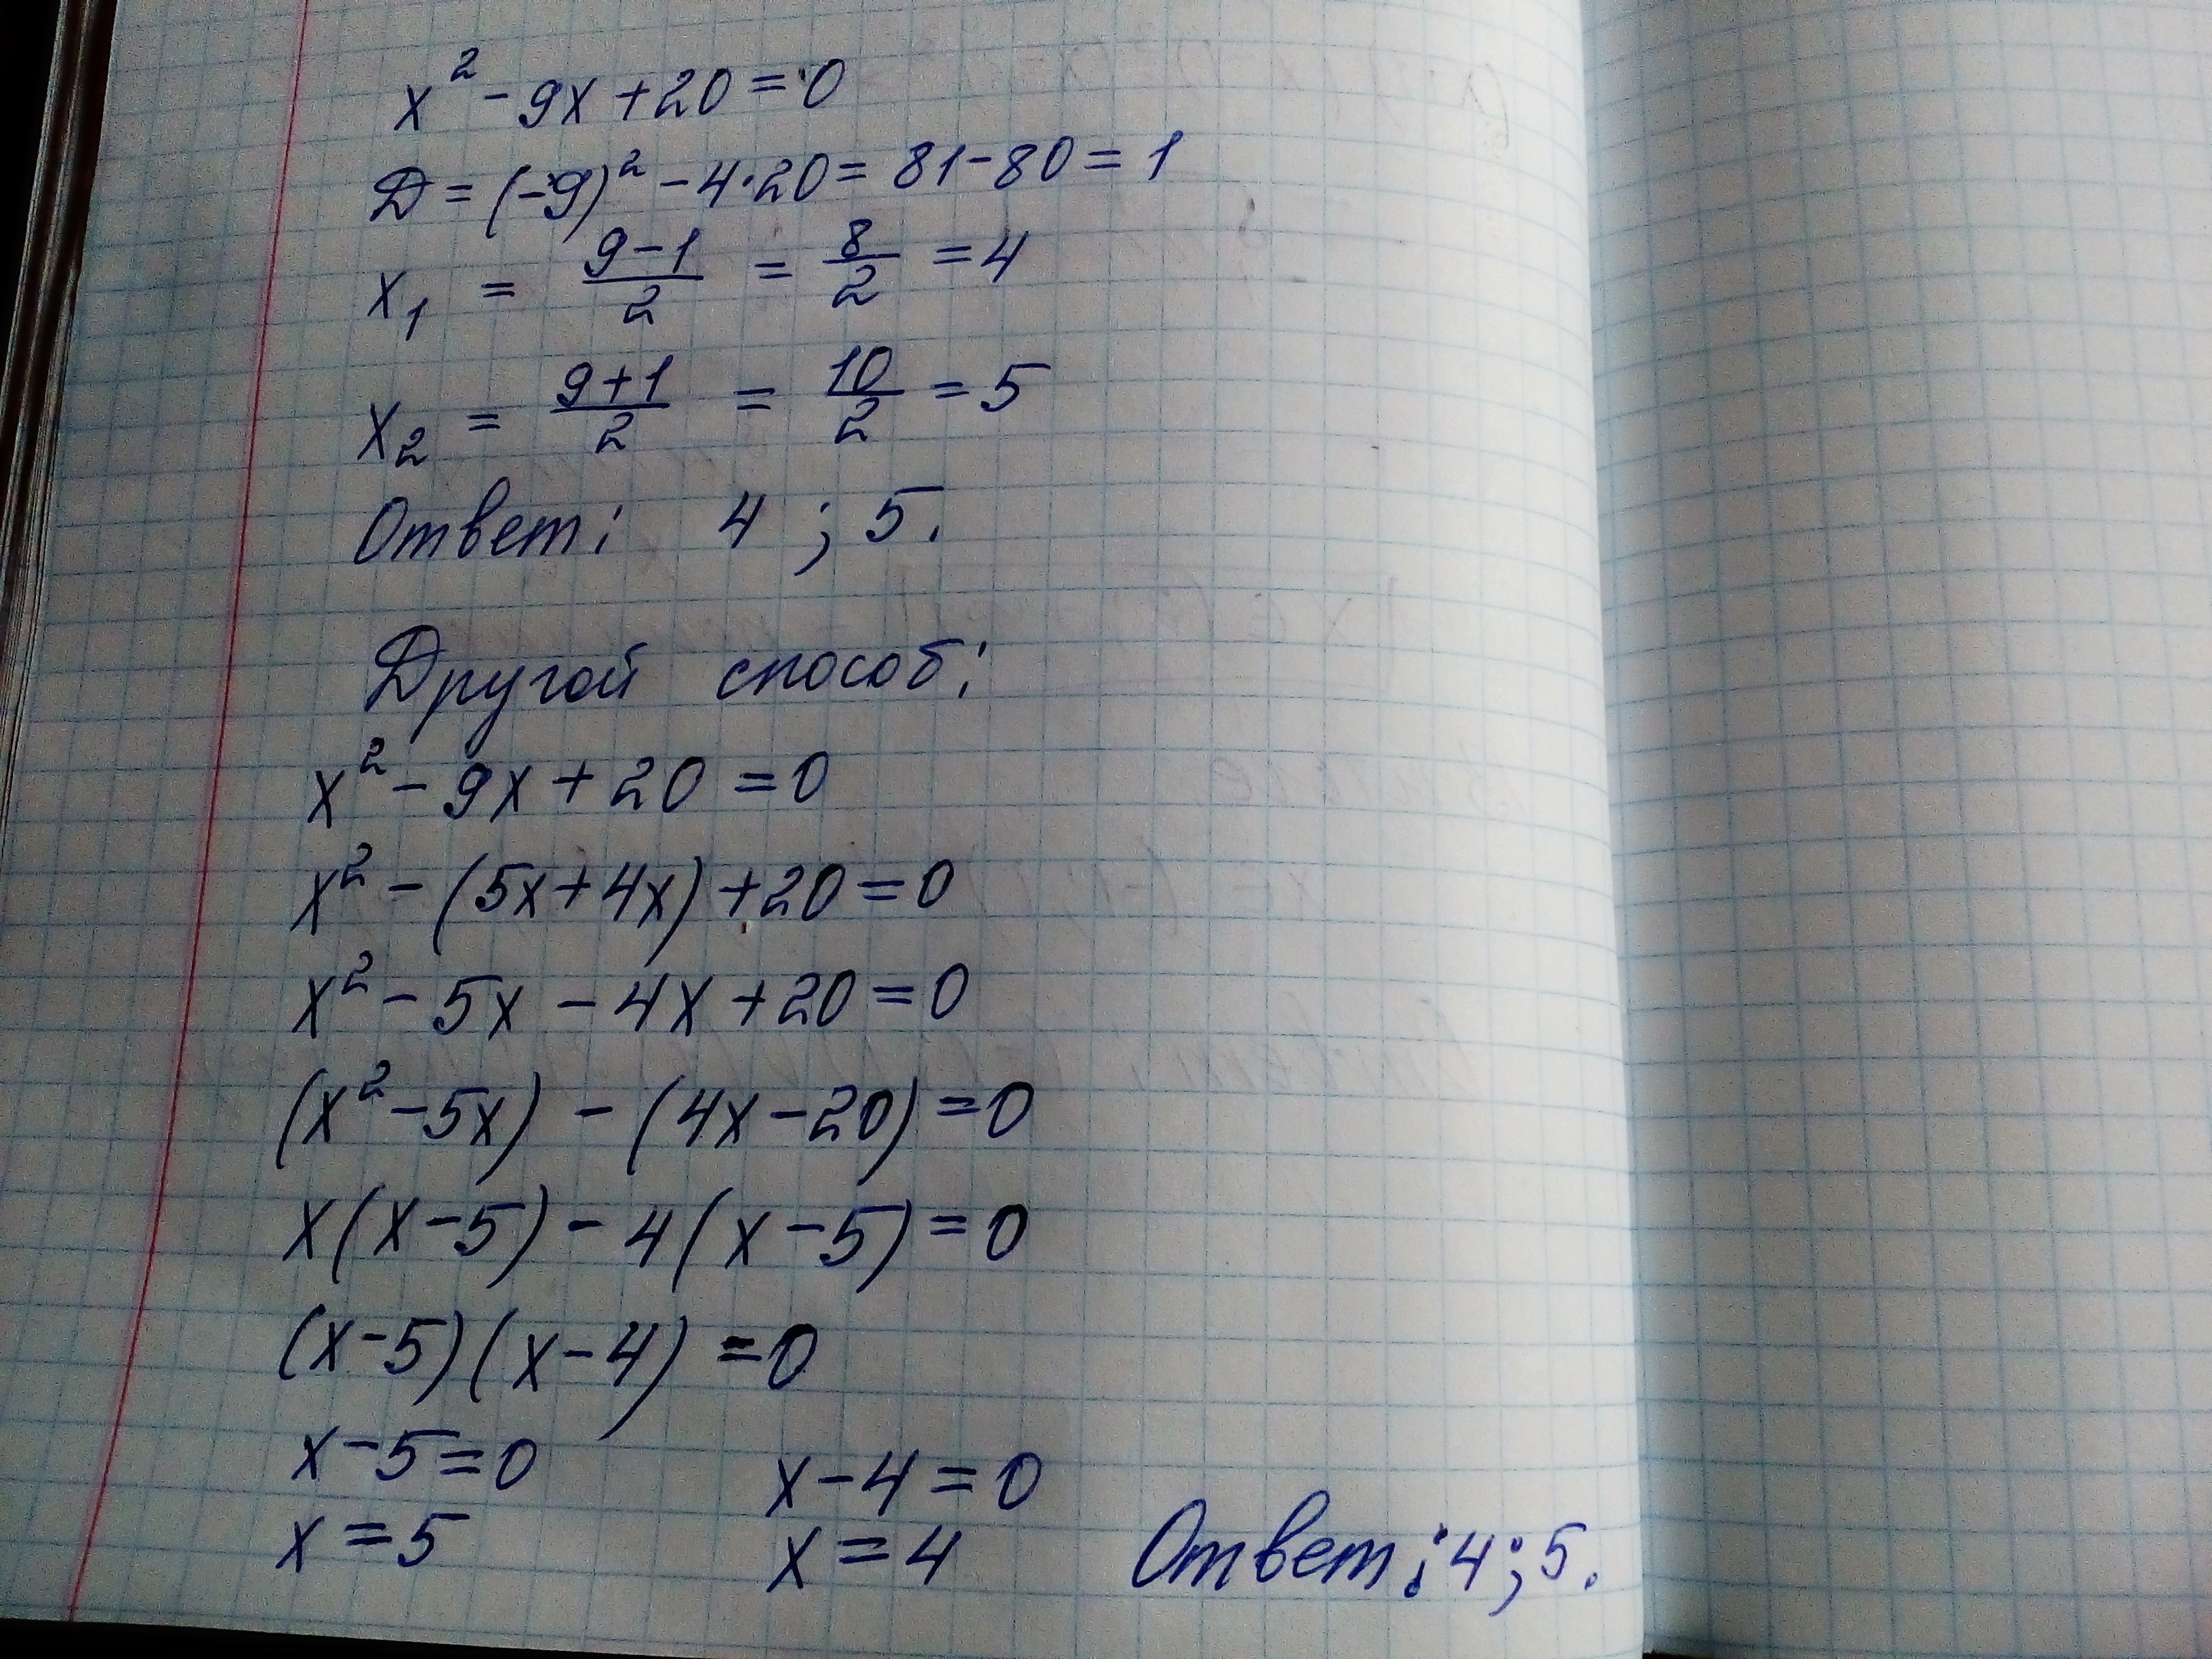 x² - 9x + 20 = 0
Д = (-9)² - 4·20 = 81 - 80 = 1
x₁ = (9-1)/2 = 8/2 = 4
x₂ = (9+1)/2 = 10/2 = 5
Ответ: 4 ; 5.
Другой способ:
x² - 9x + 20 = 0
x² - (5x + 4x) + 20 = 0
x² - 5x - 4x + 20 = 0
(x² - 5x) - (4x - 20) = 0
x(x - 5) - 4(x - 5) = 0
(x - 5)(x - 4) = 0
x - 5 = 0 x - 4 = 0
x = 5 x = 4 Ответ: 4; 5.